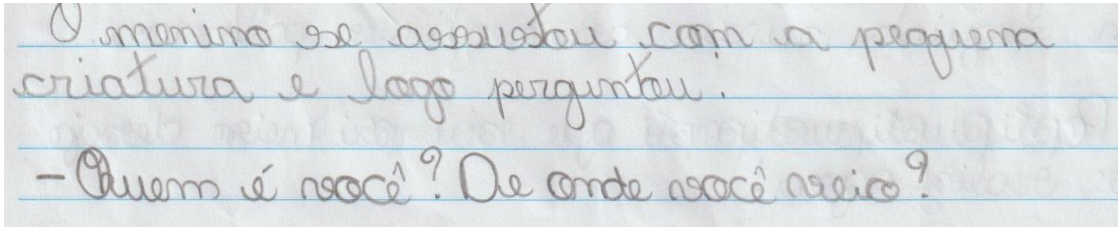 O menino se assustou com a pequena
criatura e logo perguntou:
-Quem é você? De onde você veio?